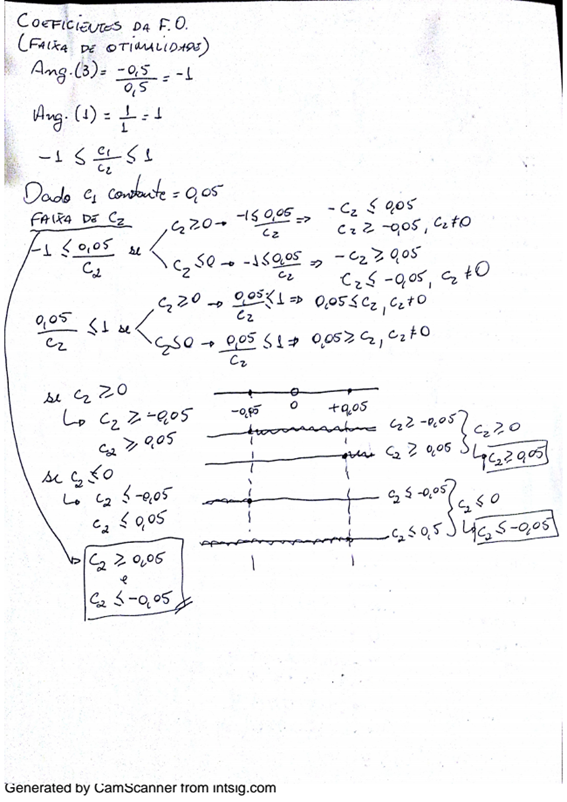 COEFICIENTES DA F.O.
(FAIXA DE OTIMALIDADE)
Ang.(3) = -0,5/0,5 = -1
Ang.(1) = 1/1 = 1
-1 ≤ c1/c2 ≤ 1
Dado c1 constante = 0,05
FAIXA DE C2
-1 ≤ 0,05/C2 se
C2 ≥ 0 → -1 ≤ 0,05/C2 ⇒ -C2 ≤ 0,05
C2 ≥ -0,05, C2 ≠ 0
C2 ≤ 0 → -1 ≤ 0,05/C2 ⇒ -C2 ≥ 0,05
C2 ≤ -0,05, C2 ≠ 0
0,05/C2 ≤ 1 se
C2 ≥ 0 → 0,05/C2 ≤ 1 ⇒ 0,05 ≤ C2, C2 ≠ 0
C2 ≤ 0 → 0,05/C2 ≤ 1 ⇒ 0,05 ≥ C2, C2 ≠ 0
se C2 ≥ 0
↳ C2 ≥ -0,05
C2 ≥ 0,05
-0,05 0 +0,05
C2 ≥ -0,05
C2 ≥ 0,05
C2 ≥ 0
↳ C2 ≥ 0,05
se C2 ≤ 0
↳ C2 ≤ -0,05
C2 ≤ 0,05
C2 ≤ -0,05
C2 ≤ 0,5
C2 ≤ 0
↳ C2 ≤ -0,05
C2 ≥ 0,05
e
C2 ≤ -0,05
Generated by CamScanner from intsig.com